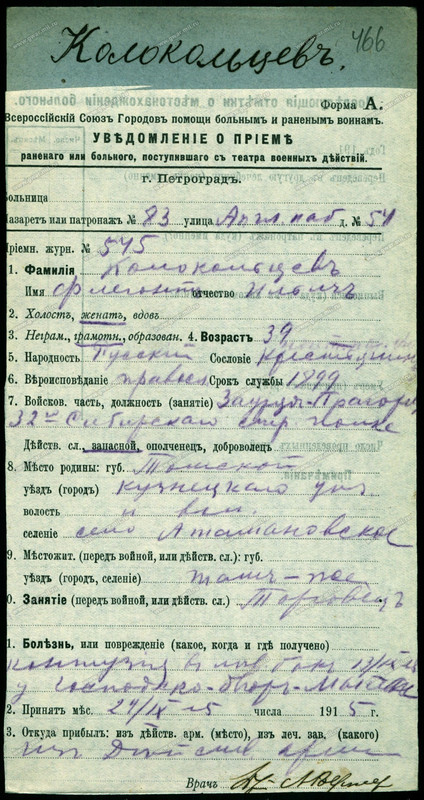 Колокольцевъ.
466
Форма А.
Всероссійскій Союз Городов помощи больным и раненым воинам.
УВѢДОМЛЕНІЕ О ПРІЕМѢ
раненаго или больного, поступившаго съ театра военныхъ дѣйствій.
г. Петроградъ.
ольница
азаретъ или патронажъ № 83 улица Англ. наб д. №
ріемн. журн. № 545
1. Фамилія Колокольцевъ
Имя Флегонтъ отчество Ильичъ
2. Холостъ, женатъ, вдовъ
3. Неграм., грамотн., образован. 4. Возрастъ 39
5. Народность Русскій Сословіе
6. Вѣроисповѣданіе правосл Срокъ службы 1899
7. Войсков. часть, должность (занятіе) Заурядъ-Прапорщ
32го Сибирскаго стр. полка
Дѣйств. сл., запасной, ополченец, доброволец
8. Мѣсто родины: губ. Томской
уѣздъ (городъ) Кузнецкаго
волость
селеніе село Атамановское
9. Мѣстожит. (передъ войной, или дѣйств. сл.): губ.
уѣздъ (город, селеніе) тамъ-же
0. Занятіе (передъ войной, или дѣйств. сл.) Торговецъ
1. Болѣзнь, или поврежденіе (какое, когда и гдѣ получено)
контузія въ лѣв бокъ
у
2. Принятъ мѣс. 24/IX-15 числа 1915 г.
3. Откуда прибылъ: изъ дѣйств. арм. (мѣсто), изъ леч. зав. (какого)
изъ Дѣйств арміи
Врачъ